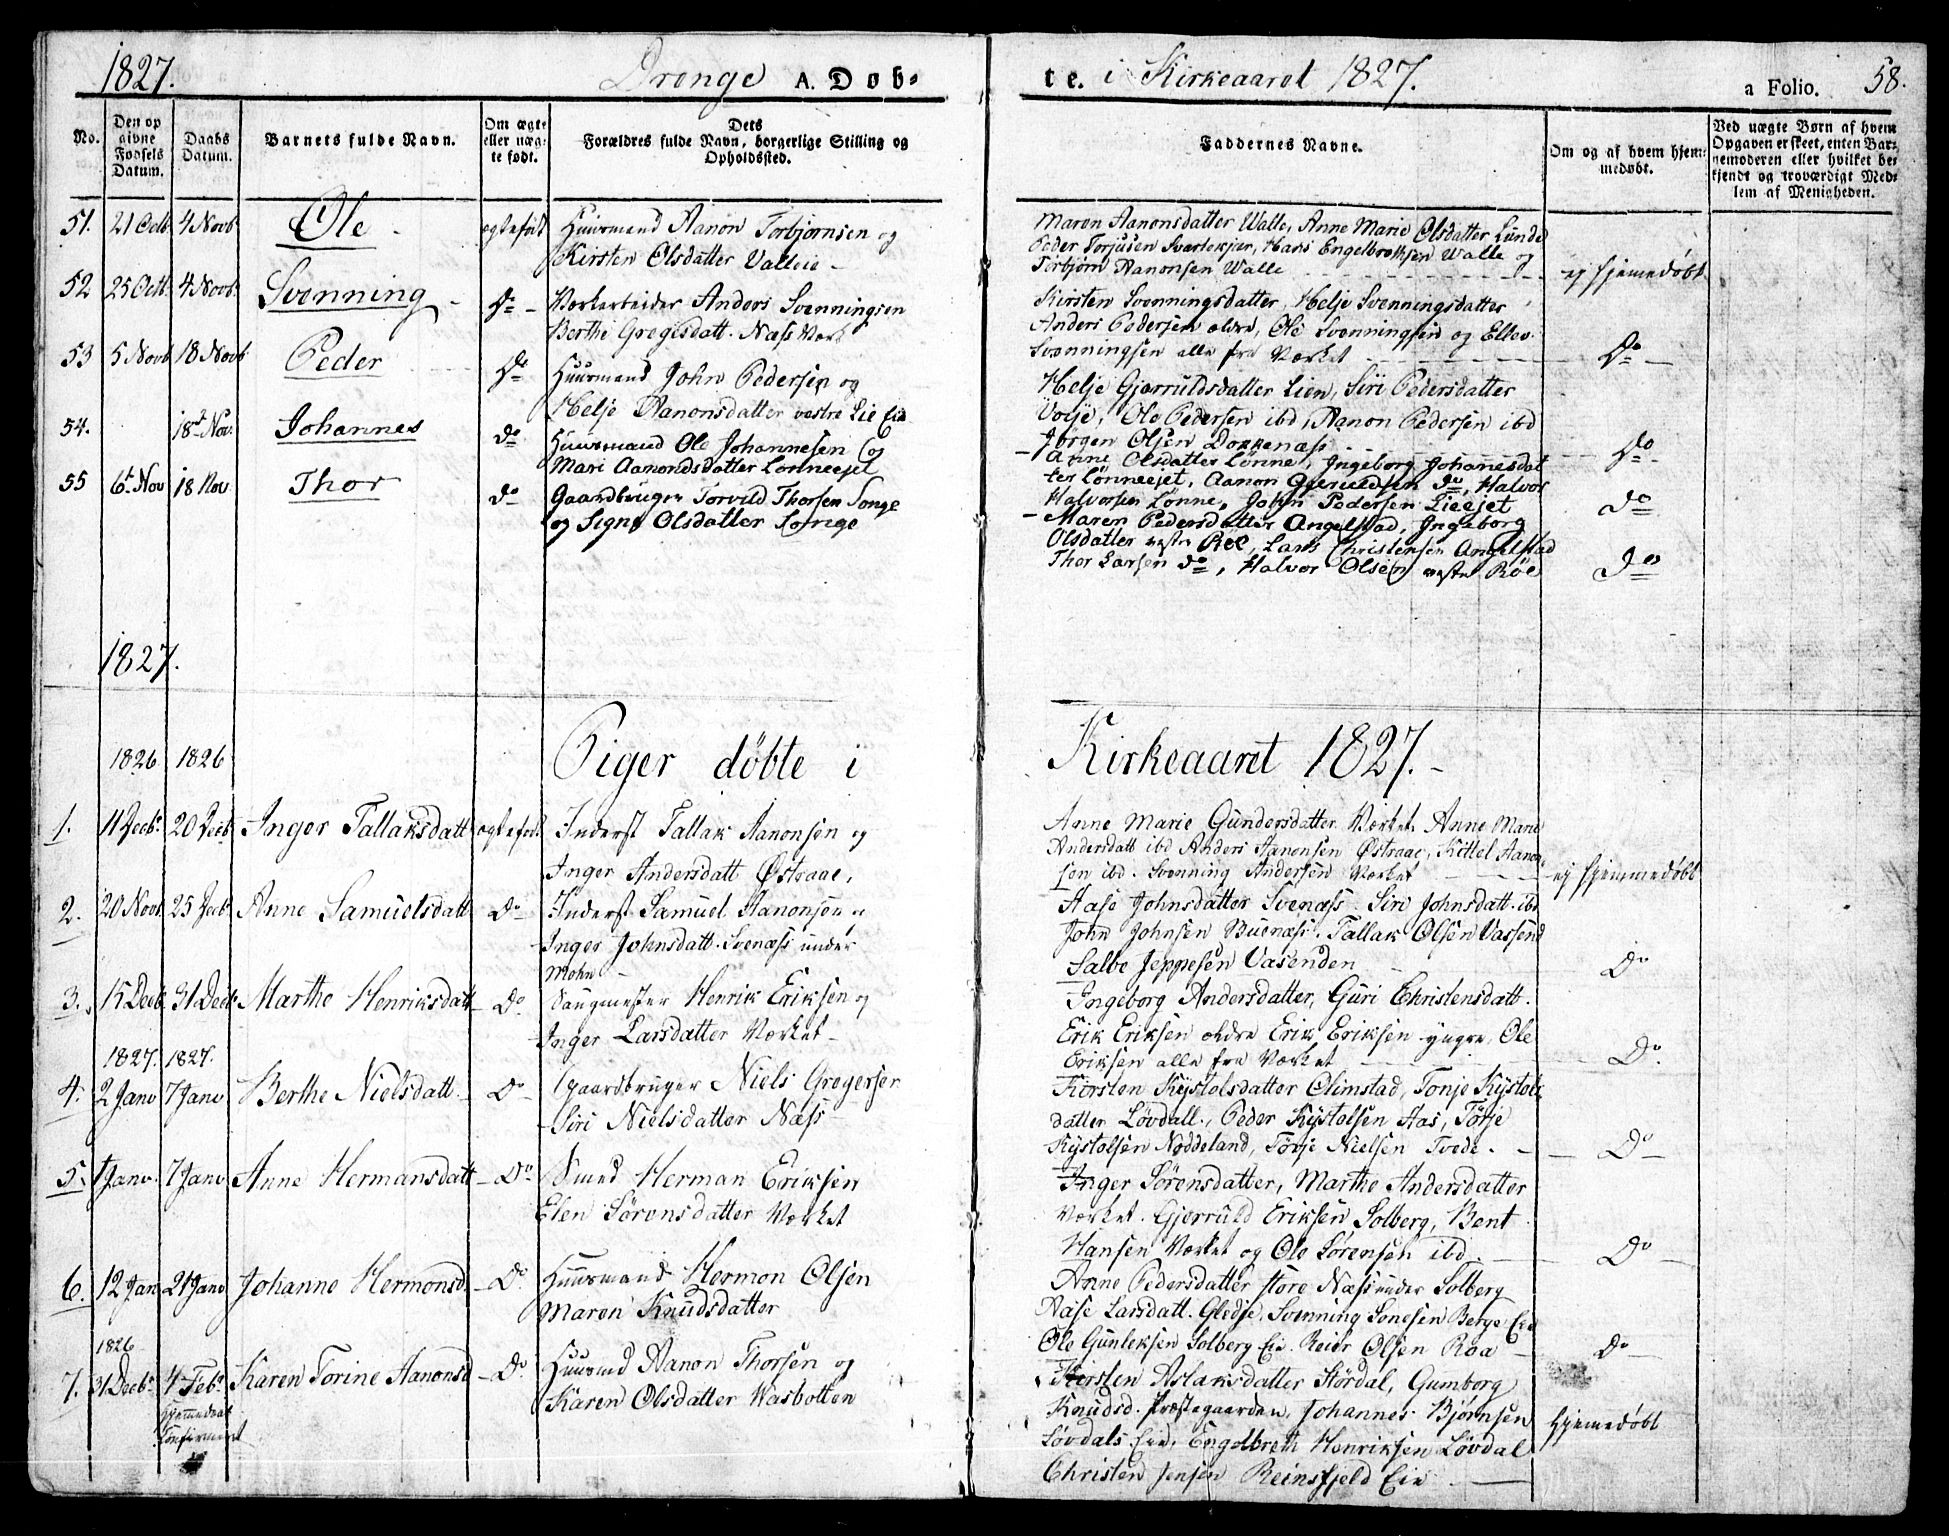 1827. Drenge A. Døb-
te. i Kirkeaaret 1827. a Folio. 58.
No. Den op givne Fødsels Datum. Daabs Datum. Barnets fulde Navn. Om ægte eller uæg-te født. Dets Forældres fulde Navn, borgerlige Stilling og Opholdssted.
Faddernes Navne. Om og af hvem hjem-medøbt. Ved uægte Børn af hvem Opgaven er skeet, enten Bar-nemoderen eller hvilket be-kjendt og troværdigt Med-lem af Menigheden.
51. 21 Octb 4 Novb Ole ægtefødt Huusmand Aanon Torbjørnsen og
Kirsten Olsdatter Valleie
Maren Aanonsdatter Walle, Anne Marie Olsdatter Lunde
Peder Torjusen Svartekjær, Hans Engelbrethsen Walle og
Torbjørn Aanonsen Walle ej hjemedøbt
52 25 Octb 4 Novb. Svenning Do Værkarbeider Anders Svenningsen
Berthe Gregersdatt. Næss Værk
Kirsten Svenningsdatter, Helje Svenningsdatter
Anders Pedersen ældre, Ole Svenningsen og Ellev
Svenningsen alle fra Værket Do
53 5 Novb 18 Novb Peder Do Huusmand John Pedersen og
Helje Aanonsdatter vestre Lie Eie
Helje Gjeruldsdatter Lien, Siri Pedersdatter
Voje, Ole Pedersen ibd, Aanon Pedersen ibd
Jørgen Olsen Dokkenæss Do
54. 18d Nov. Johannes do Huusmand Ole Johannesen og
Mari Aamondsdatter Lønneejet
Anne Olsdatter Lønne, Ingeborg Johannesdat
ter Lønneejet, Aanon Gjeruldsen do, Halvor
Halvorsen Lønne, John Pedersen Lieejet do
55 6t Nov 18 Nov Thor do Gaardbruger Torvild Thorsen Songe
og Signe Olsdatter Songe
Maren Pedersdatter Angelstad, Ingeborg
Olsdatter vestre Röe, Lars Christensen Angelstad
Thor Larsen do, Halvor Olsen vestre Röe Do
1827.
1826 1826 Piger døbte i Kirkeaaret 1827.
1. 11 Decbr 20 Decb Inger Tallaksdatt ægtefødt Inderst Tallak Aanonsen og
Inger Andersdatt Østraae,
Anne Marie Gundersdatter Værket, Anne Marie
Andersdatt ibd Anders Aanonsen Østraae, Kittel Aanon-
sen ibd. Svenning Andersen Værket ej hjemmedøbt
2. 20 Novb 25 Decbr Anne Samuelsdatt Do Inderst Samuel Aanonsen og
Inger Johnsdatt. Svenæss under
Mohn
Aase Johnsdatter Svenæss. Siri Johnsdatt. ibd
John Johnsen Buenæss. Tallak Olsen Vassend
Salve Jeppesen Vasenden Do
3. 15 Decb 31 Decb. Marthe Henriksdatt Do Saugmester Henrik Eriksen og
Inger Larsdatter Værket
Ingeborg Andersdatter, Guri Christensdatt.
Erik Eriksen ældre Erik Eriksen yngre, Ole
Eriksen alle fra Værket Do.
1827. 1827.
4. 2 Janv 7 Janv Berthe Nielsdatt. Do Gaardbruger Niels Gregersen
Siri Nielsdatter Næss
Kirsten Kystolsdatter Olimstad, Tonje Kystols
datter Løvdall, Peder Kystolsen Aas, Tørje
Kystolsen Nøddeland, Tørje Nielsen Tvede. Do
5. 1 Janv. 7 Janv Anne Hermansdatt Do Smed Herman Eriksen
Elen Sørensdatter Værket
Inger Sørensdatter, Marthe Andersdatter
Værket. Gjerruld Eriksen Solberg, Bent
Hansen Værket og Ole Sørensen ibd. Do
6. 12 Jan 21 Janv Johanne Hermonsd. Do Huusmand Hermon Olsen
Maren Knudsdatter
Anne Pedersdatter store Næss under Solberg
Aase Larsdatt. Gledje, Svenning Sonesen Berge Eie
Ole Gunleksen Solberg Eie. Reier Olsen Roa Do
1826
7. 31 Decbr 4 Febr Karen Torine Aanonsd Do Huusmd Aanon Thorsen og
Karen Olsdatter Wasbotten
Hjemedøbt
Confirmert
Kirsten Aslaksdatter Størdal, Gumborg
Knudsd. Præstegaarden, Johannes Bjørnsen
Løvdals Eie, Engelbreth Henriksen Løvdal
Christen Jensen Reinsfjeld Eie Hjemedøbt